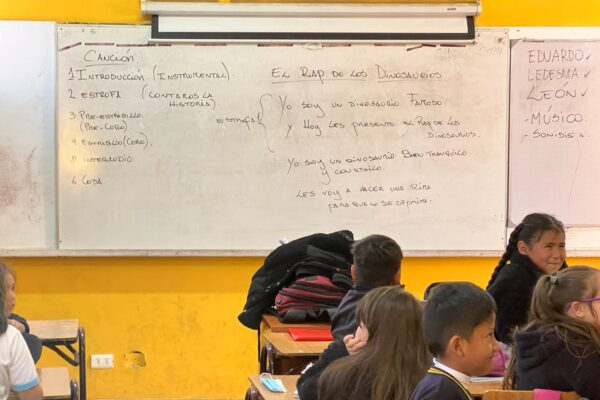 CANCIÓN
1 INTRODUCCIÓN (INSTRUMENTAL).
2. ESTROFA (CONTAMOS LA
HISTORIA).
3. PRE-ESTRIBILLO
(PRE-CORO).
4. ESTRIBILLO (CORO).
5. INTERLUDIO
6 CODA
EL RAP DE LOS DINOSAURIOS
ESTROFA 1
YO SOY UN DINOSAURIO FAMOSO
Y HOY LES PRESENTO EL RAP DE LOS
DINOSAURIOS.
YO SOY UN DINOSAURIO BIEN TRANQUILO
Y CON ESTILO
LES VOY A HACER UNA RIMA
PARA QUE NO SE DEPRIMA.
EDUARDO ✓
LEDESMA ✓
LEÓN ✓
- MÚSICO.
- SONIDISTA